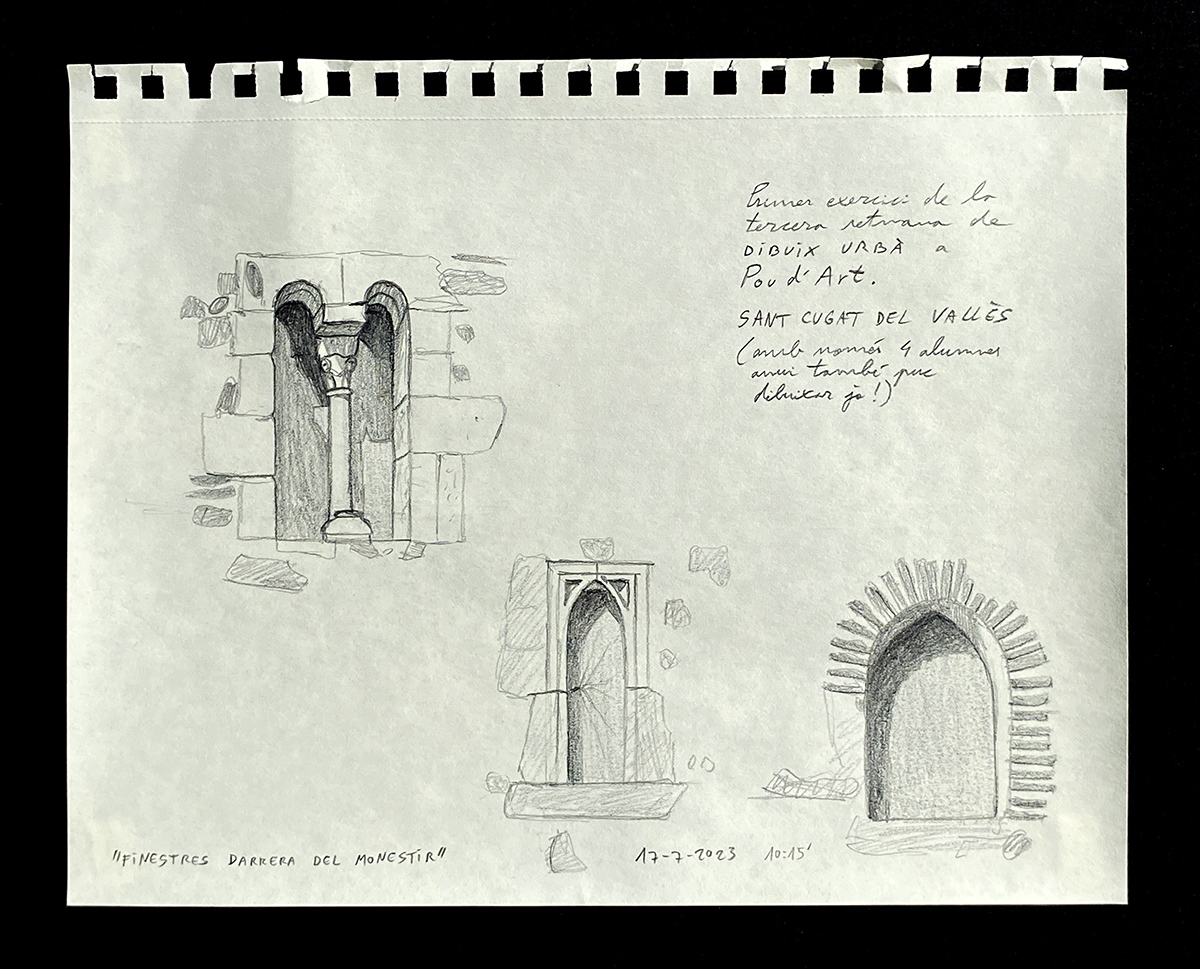 Primer exercici de la
tercera setmana de
DIBUIX URBÀ a
Pou d'Art.
SANT CUGAT DEL VALLÈS
(amb només 4 alumnes
avui també puc
dibuixar jo!)
"FINESTRES DARRERA DEL MONESTIR"
17-7-2023 10:15'